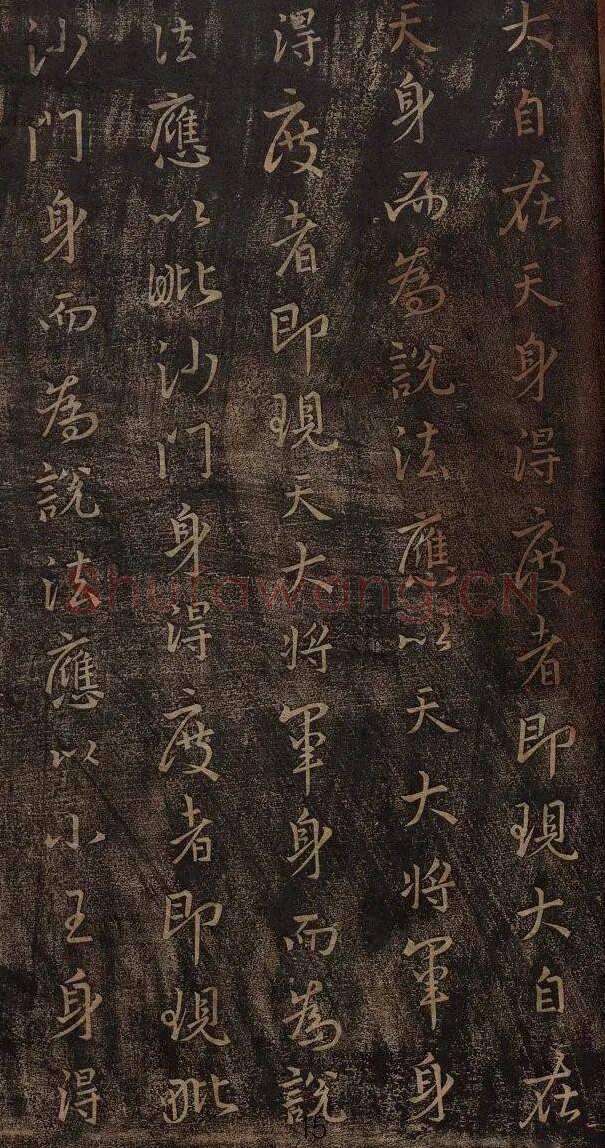 大自在天身得度者即現大自在
天身而為說法應以天大將軍身
得度者即現天大將軍身而為說
法應以毗沙門身得度者即現毗
沙門身而為說法應以小王身得
Shufawang.CN
15